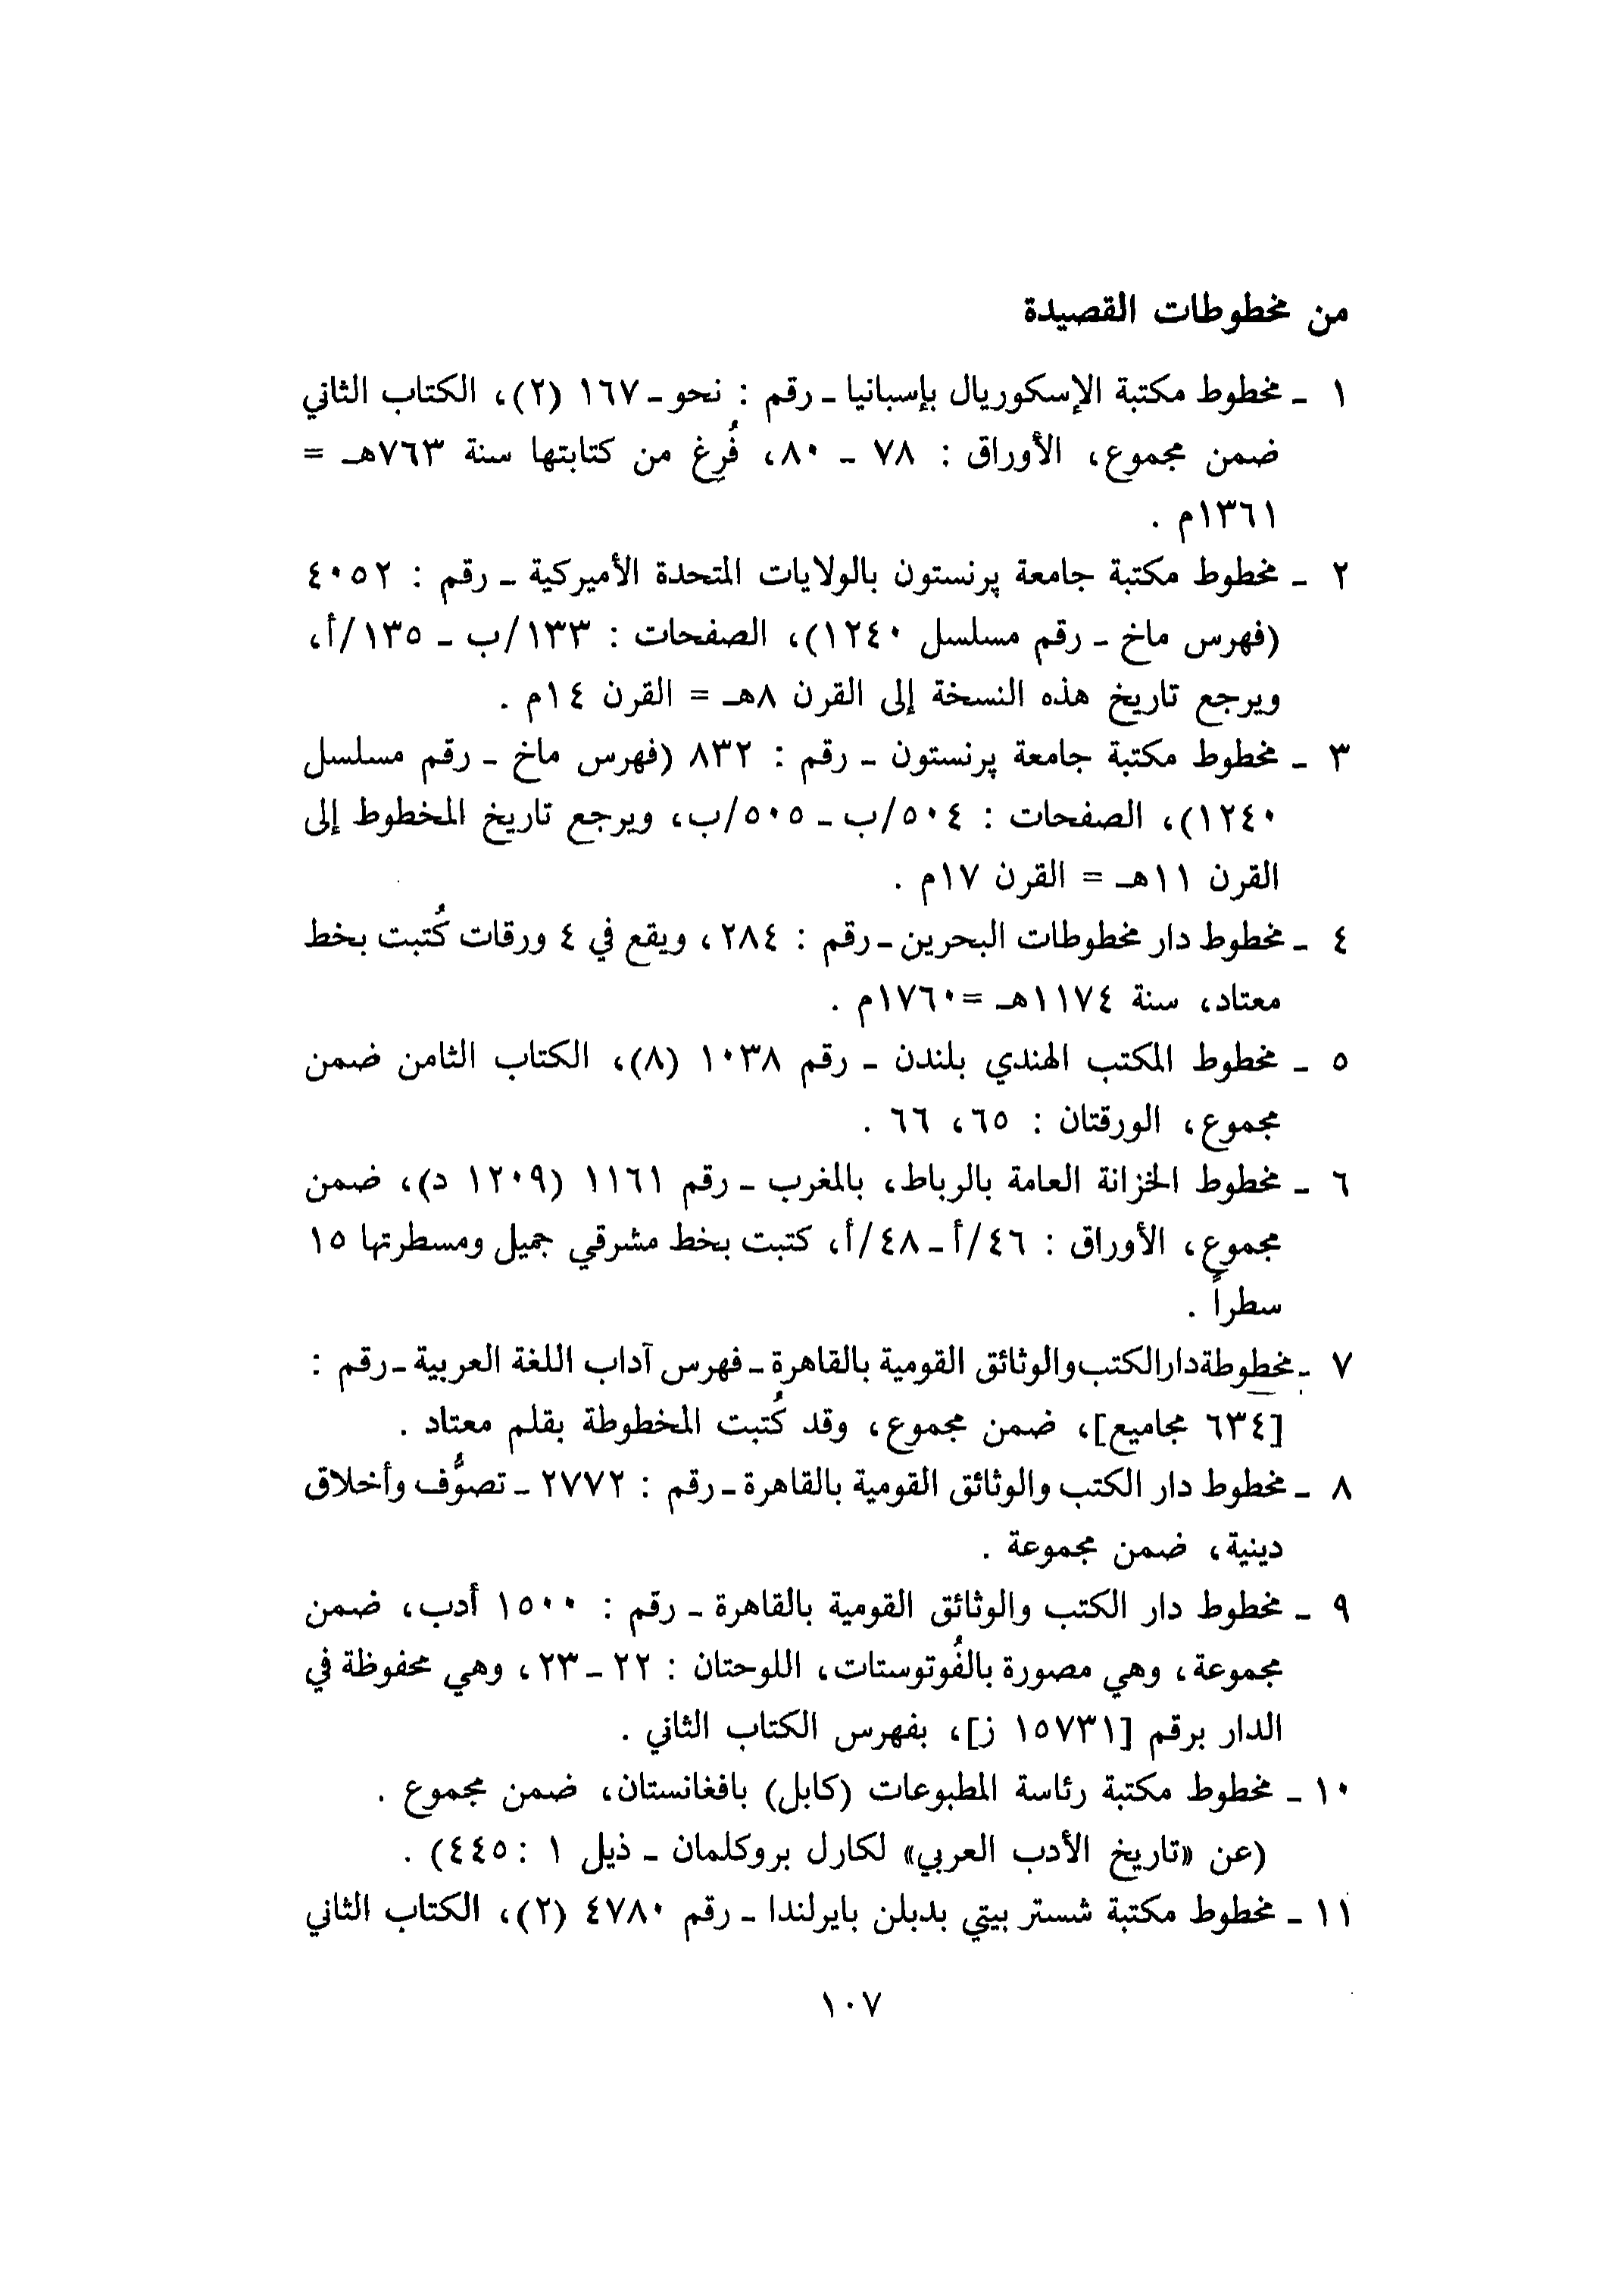 من مخطوطات القصيدة
١ ـ مخطوط مكتبة الإسكوريال بإسبانيا ـ رقم : نحو ـ ١٦٧ (٢)، الكتاب الثاني
ضمن مجموع، الأوراق : ٧٨ ـ ٨٠، فُرِغ من كتابتها سنة ٧٦٣هـ =
١٣٦١م .
٢ ـ مخطوط مكتبة جامعة پرنستون بالولايات المتحدة الأميركية ـ رقم : ٤٠٥٢
(فهرس ماخ ـ رقم مسلسل ١٢٤٠)، الصفحات : ١٣٣/ب ـ ١٣٥/أ،
ويرجع تاريخ هذه النسخة إلى القرن ٨هـ = القرن ١٤م .
٣ ـ مخطوط مكتبة جامعة پرنستون ـ رقم : ٨٣٢ (فهرس ماخ ـ رقم مسلسل
١٢٤٠)، الصفحات : ٥٠٤/ب ـ ٥٠٥/ب، ويرجع تاريخ المخطوط إلى
القرن ١١هـ = القرن ١٧م .
٤ ـ مخطوط دار مخطوطات البحرين ـ رقم : ٢٨٤، ويقع في ٤ ورقات كُتبت بخط
معتاد، سنة ١١٧٤هـ =١٧٦٠م .
٥ ـ مخطوط المكتب الهندي بلندن ـ رقم ١٠٣٨ (٨)، الكتاب الثامن ضمن
مجموع، الورقتان : ٦٥، ٦٦ .
٦ ـ مخطوط الخزانة العامة بالرباط، بالمغرب ـ رقم ١١٦١ (١٢٠٩ د)، ضمن
مجموع، الأوراق : ٤٦/أ ـ ٤٨/أ، كتبت بخط مشرقي جميل ومسطرتها ١٥
سطراً .
٧ ـ مخطوطة دار الكتب والوثائق القومية بالقاهرة ـ فهرس آداب اللغة العربية ـ رقم :
[٦٣٤ مجاميع]، ضمن مجموع، وقد كُتبت المخطوطة بقلم معتاد .
٨ ـ مخطوط دار الكتب والوثائق القومية بالقاهرة ـ رقم : ٢٧٧٢ ـ تصوُّف وأخلاق
دينية، ضمن مجموعة .
٩ ـ مخطوط دار الكتب والوثائق القومية بالقاهرة ـ رقم : ١٥٠٠ أدب، ضمن
مجموعة، وهي مصورة بالفُوتوستات، اللوحتان : ٢٢ ـ ٢٣، وهي محفوظة في
الدار برقم [١٥٧٣١ ز]، بفهرس الكتاب الثاني .
١٠ ـ مخطوط مكتبة رئاسة المطبوعات (كابل) بافغانستان، ضمن مجموع .
(عن «تاريخ الأدب العربي» لكارل بروكلمان ـ ذيل ١ : ٤٤٥) .
١١ ـ مخطوط مكتبة شستر بيتي بدبلن بايرلندا ـ رقم ٤٧٨٠ (٢)، الكتاب الثاني
١٠٧